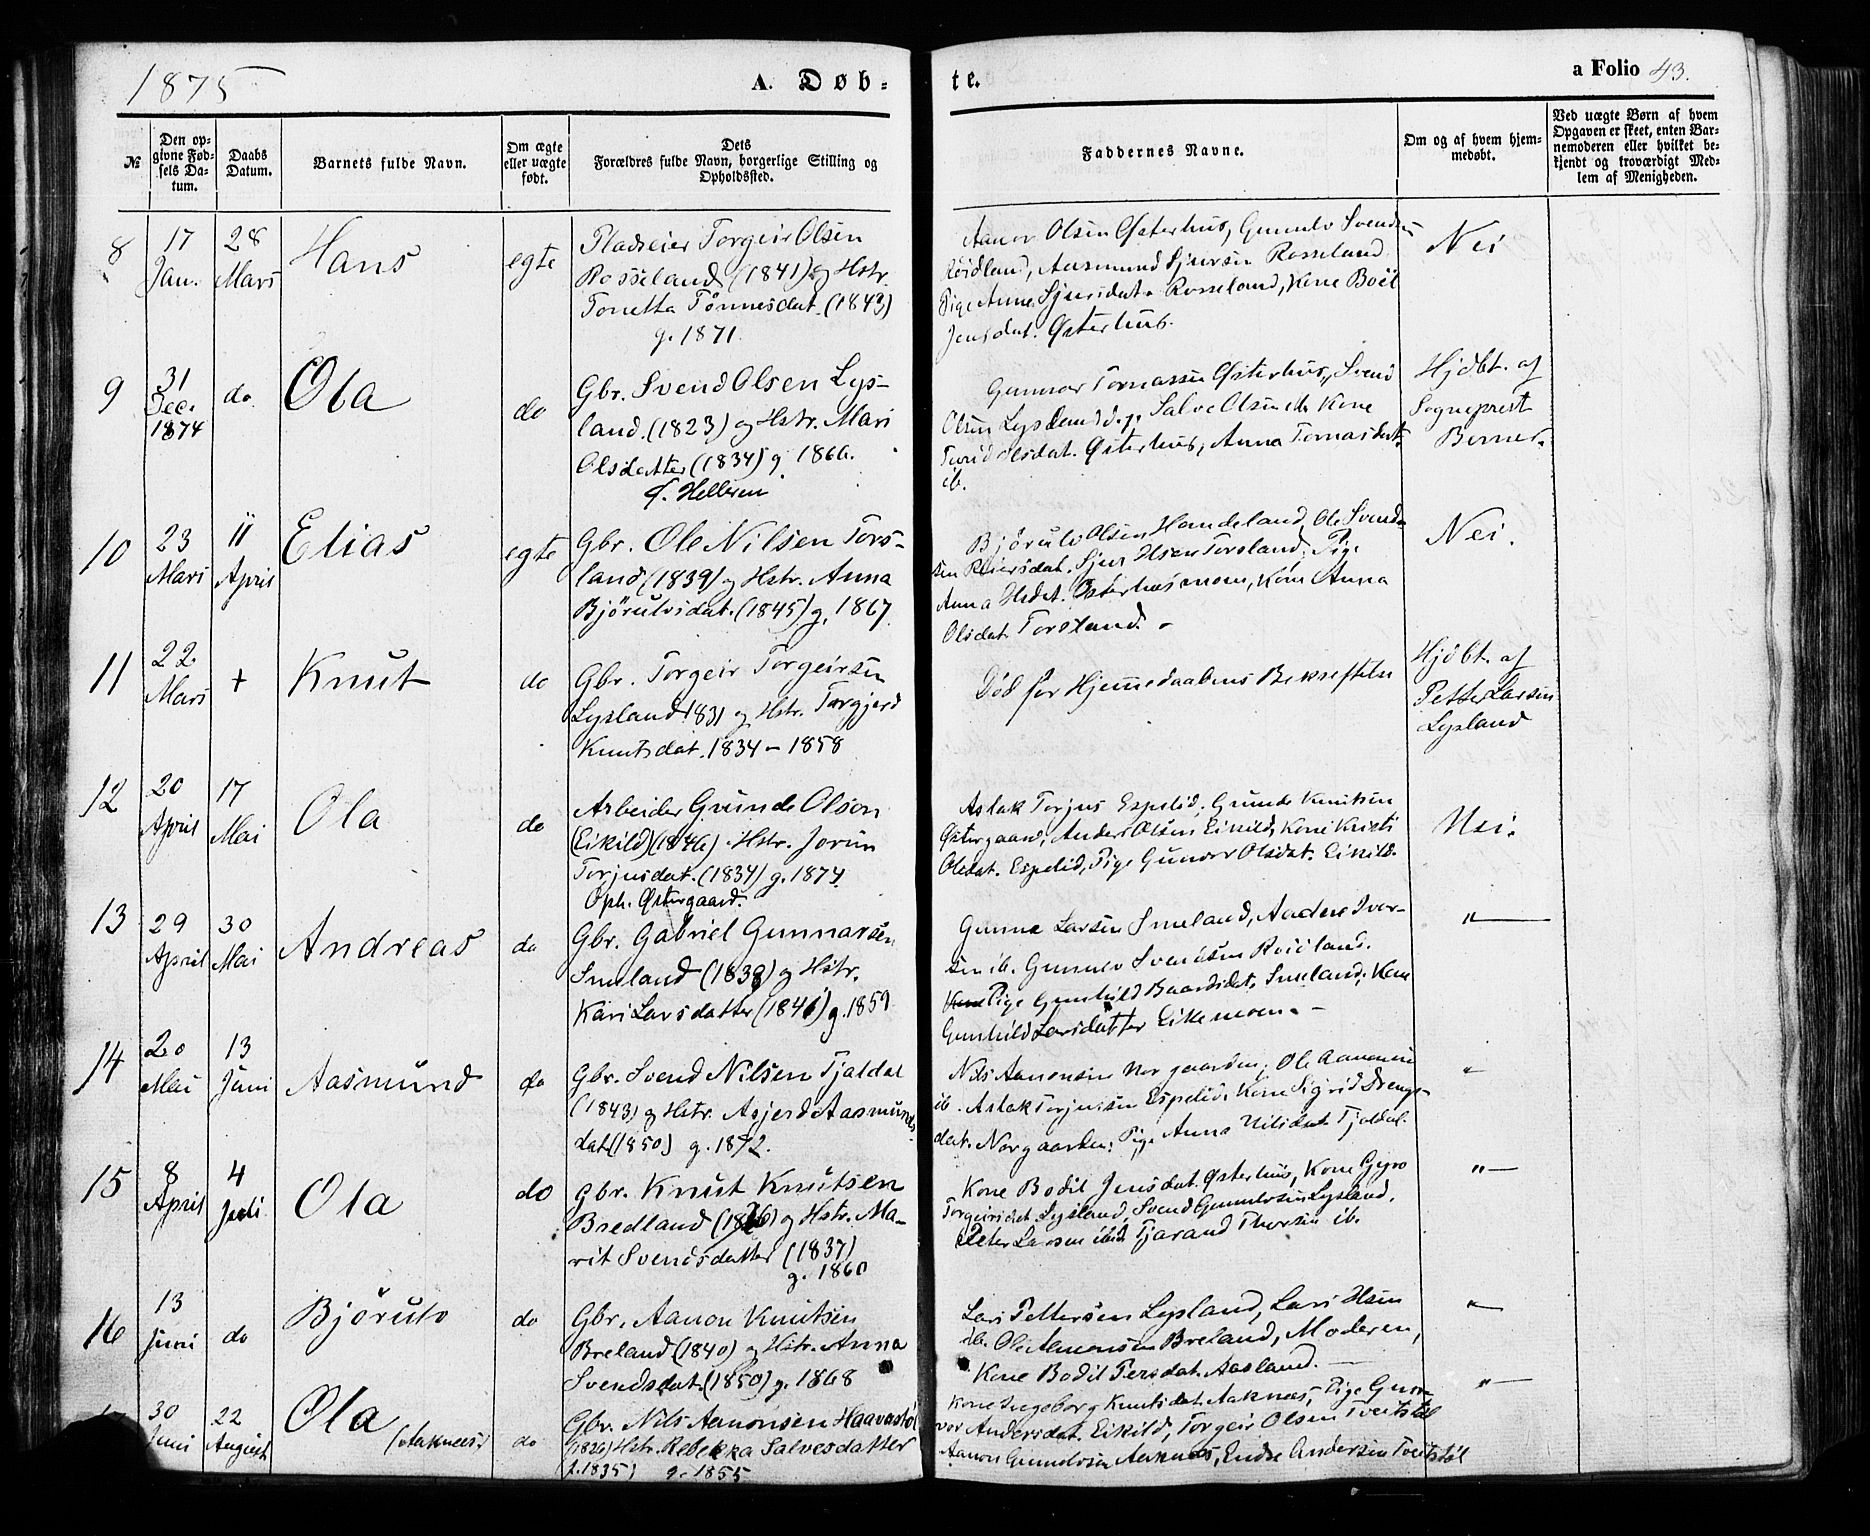 1875
A. Døb-
te.
a Folio 43.
№
Den op-
givne Fød-
sels Da-
tum.
Daabs
Datum.
Barnets fulde Navn.
Om ægte
eller uægte
født.
Dets
Forældres fulde Navn, borgerlige Stilling og
Opholdssted.
Faddernes Navne.
Om og af hvem hjem-
medøbt.
Ved uægte Børn af hvem
Opgaven er skeet, enten Bar-
nemoderen eller hvilket be-
kjendt og troværdigt Med-
lem af Menigheden.
8
17
Jan.
28
Mars
Hans
egte
Pladseier Torgeir Olsen
Rosseland (1841) og Hstr.
Tonetta Tønnesdat. (1843)
g. 1871.
Aanov Olsen Østerhus, Gunnulv Svendsen
Røidland, Aasmund Sjursen Rosseland,
Pige Anne Sjursdat. Rosseland, Kone Boël
Jensdat. Østerhus.
Nei
9
31
Dec.
1874
do.
Ola
do
Gbr. Svend Olsen Lys-
land. (1823) og Hstr. Mari
Olsdatter (1834) g. 1860.
f. Helleren
Gunnar Tomassen Østerhus, Svend
Olsen Salve Olsen Kone
Turid Olsdat. Østerhus, Anna Tomasdat.
ib.
Hjdbt. af
Sogneprest
Berner.
10
23
Mars
11
April
Elias
egte
Gbr. Ole Nilsen Tors-
land (1839) og Hstr. Anna
Bjørulvsdat. (1845) g. 1867.
Bjørulv Olsen Handeland, Ole Svend-
sen Sjur Olsen Torsland, Pige
Anna Olsdat. Østerhusmoen, Kone Anna
Olsdat. Torsland. -
Nei.
11
22
Mars
+
Knut
do
Gbr. Torgeir Torgeirsen
Lysland 1831 og Hstr. Torgjerd
Knutsdat. 1834 - 1858
Død før Hjemmedaabens Bekreftelse
Hjdbt. af
Petter Larsen
Lysland
12
20
April
17
Mai
Ola
do
Arbeider Grunde Olson
(Eikild) (1846) Hstr. Jorun
Torjusdat. (1834) g. 1874.
Oph. Østergaard.
Aslak Torjus Espelid, Grunde Knutsen
Østergaard, Anders Olsen Eikild, Kone Kristi
Olsdat. Espelid, Pige Gunvor Olsdat. Eikild.
Nei.
13
29
April
30
Mai
Andreas
do
Gbr. Gabriel Gunnarsen
Smeland (1838) og Hstr.
Kari Larsdatter (1841) g. 1859
Gunnar Larsen Smeland, Andrec Iver-
sen ib. Gunnulv Svendsen Røidland.
Kone Pige Gunhild Baardsdat. Smeland, Kone
Gunhild Larsdatter Eikemoen. -
"
14
20
Mai
13
Juni
Aasmund
do
Gbr. Svend Nilsen Tjaldal
(1843) og Hstr. Asjerd Aasmunds-
dat (1850) g. 1872.
Nils Aanonsen Norgaarden, Ole Aanonsen
ib. Aslak Torjusen Espelid, Kone Sigrid Drengs-
dat. Norgaarden, Pige Anna Nilsdat. Tjaldal.
"
15
8
April
4
Juli
Ola
do
Gbr. Knut Knutsen
Bredland og Hstr. Ma-
rit Svendsdatter (1837)
g. 1860
Kone Bodil Jensdat. Østerhus, Kone Gyro
Torgeirsdat. Lysland, Svend Gunnulvsen Lysland,
Peter Larsen ibid. Tjarand Thorsen ib.
"
16
13
Juni
do
Bjørulv
do
Gbr. Aanon Knutsen
Breland (1840) og Hstr. Anna
Svendsdat. (1850) g. 1868
Lars Pettersen Lysland, Lars Olsen
ib. Ole Aanonsen Breland, Moderen,
Kone Bodil Persdat. Aasland.
"
30
Juni
22
August
Ola
(Aaknees.)
do
Gbr. Nils Aanonsen Haavastøl
(1826) Hstr. Rebekka Salvesdatter
f. 1835) g. 1855
Kone Ingeborg Knutsdat. Aaknæs, Pige Gun-
vor Andersdat. Eikild, Torgeir Olsen Tveitstøl
Aanon Gunnulvsen Aaknæs, Endre Andersen Tveitstøl
"